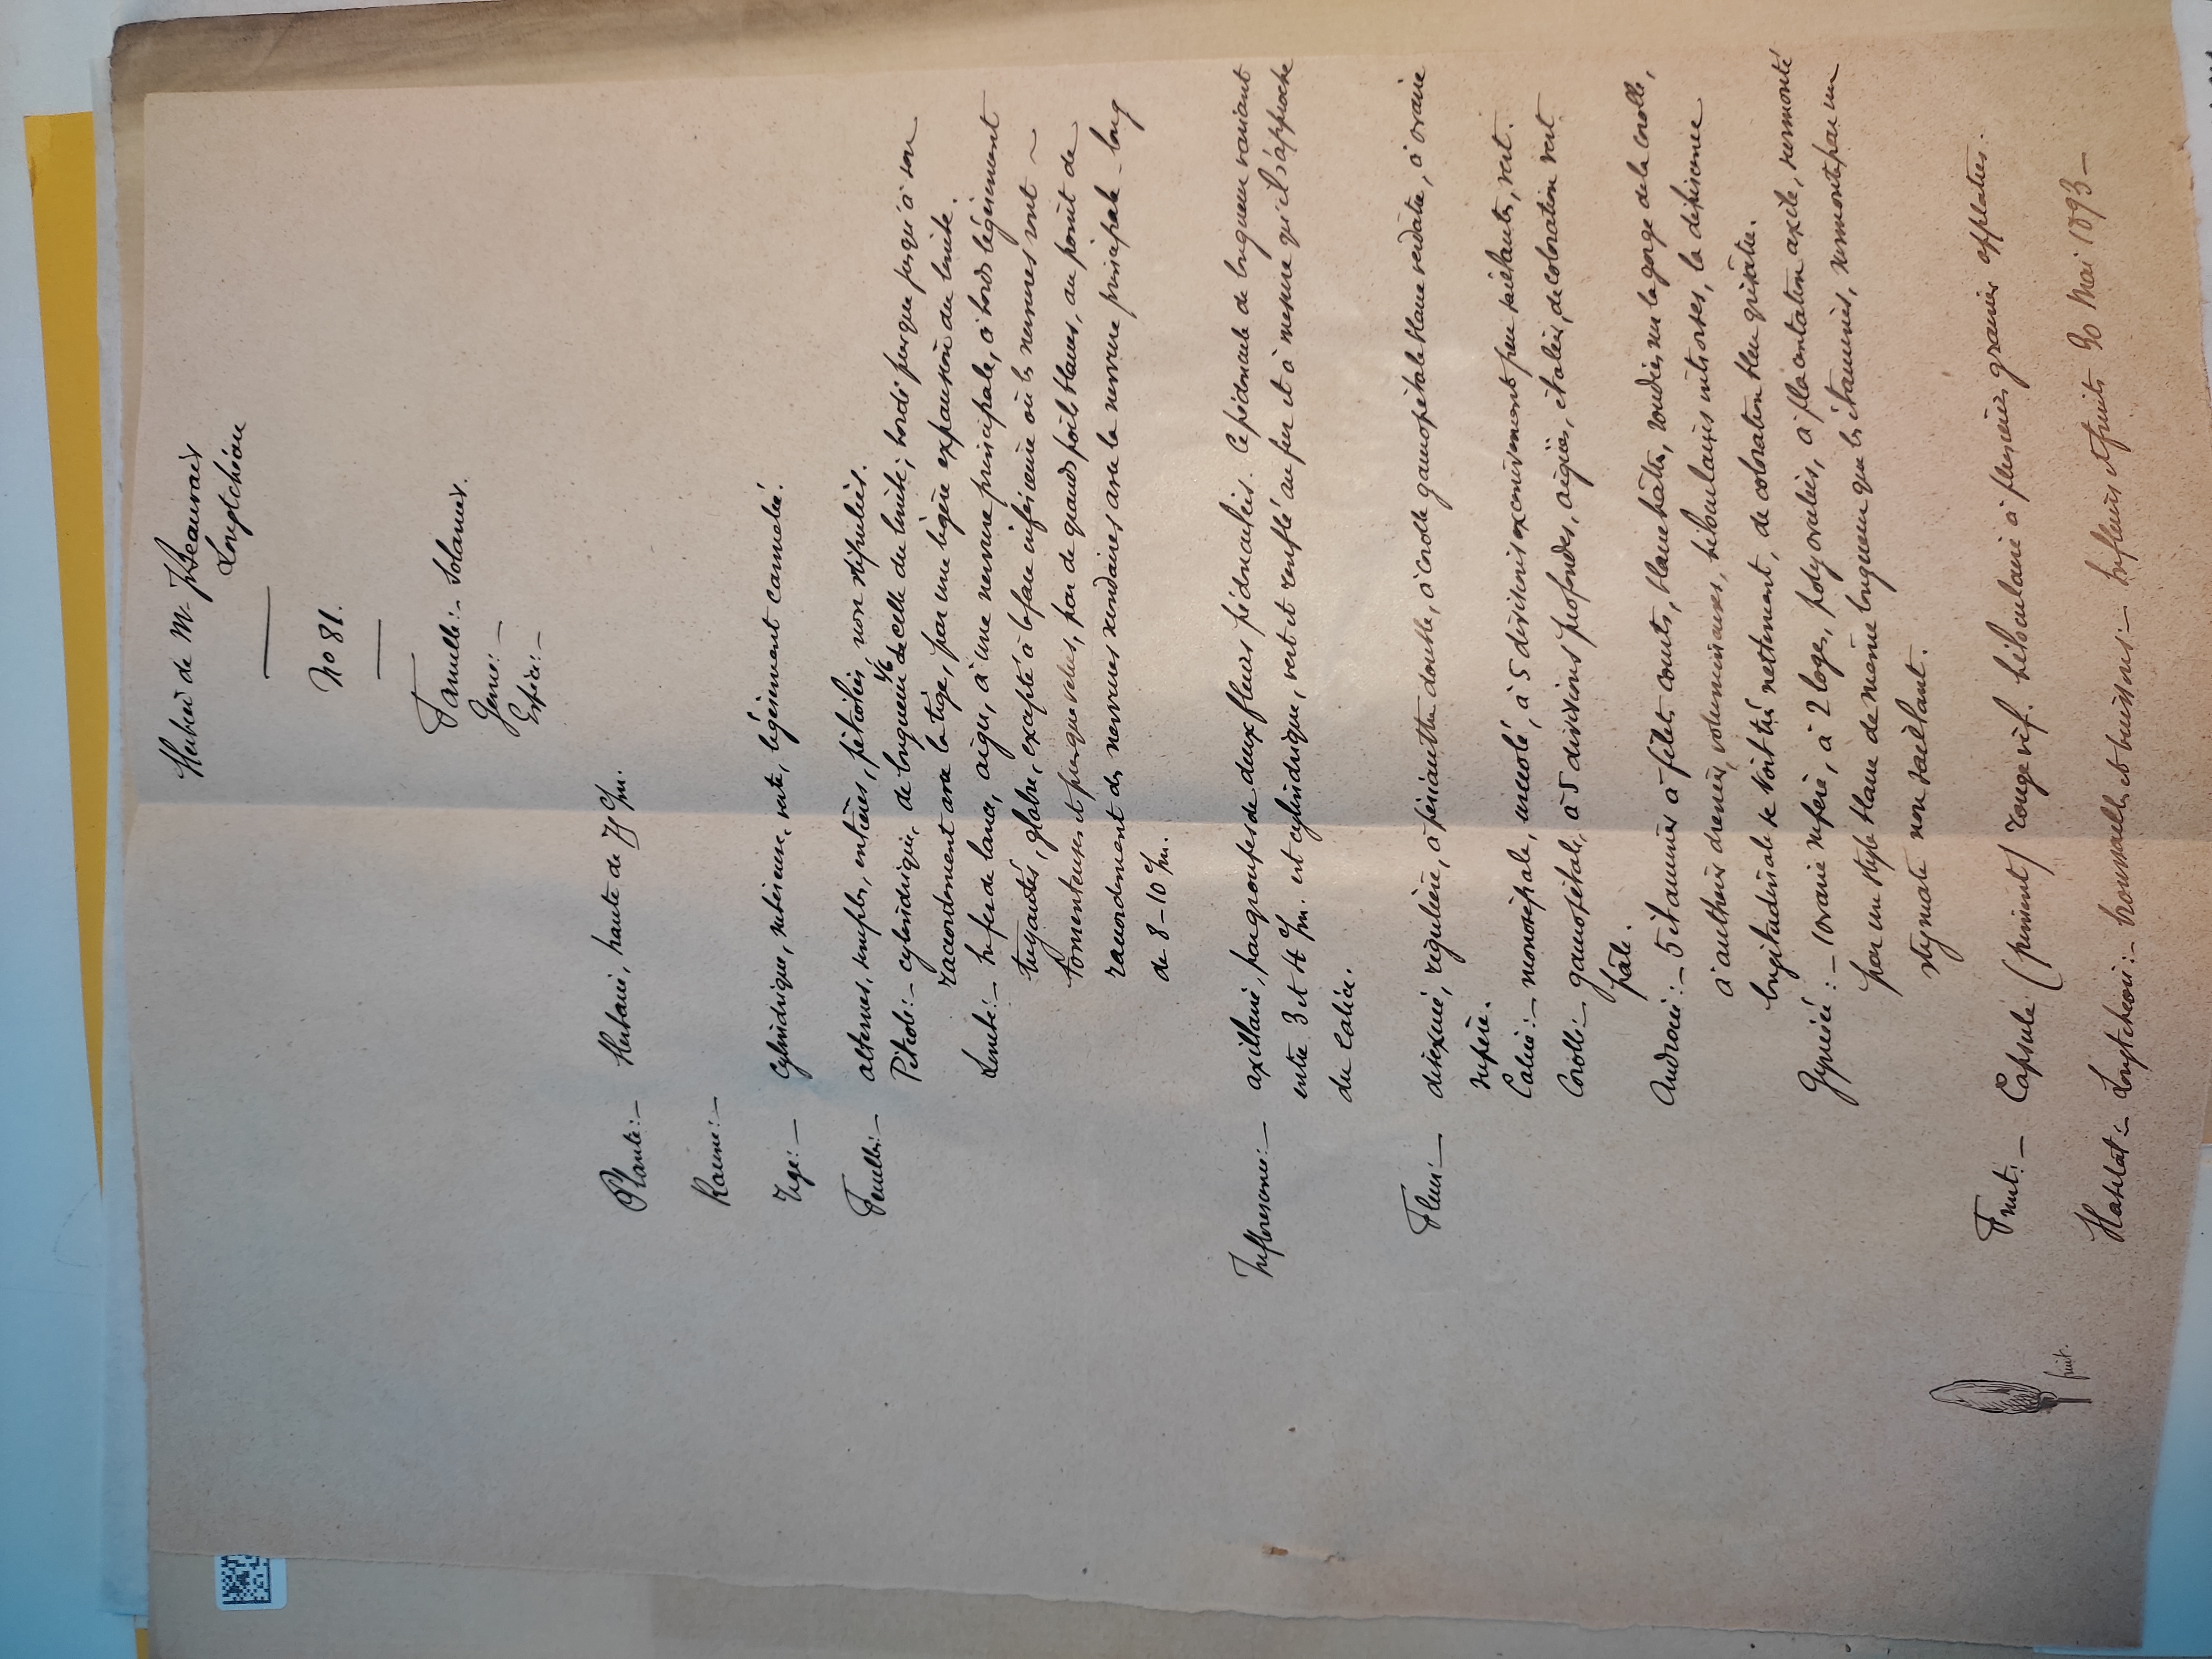 Herbier de M. J. Beauvais
Longtchéou
No 81.
Famille:- Solanées.
Genre:-
Espèce:-
Plante:- Herbacée, haute de 75 c/m.
Racine:-
Tige:- Cylindrique, subéreuse, verte, légèrement cannelée.
Feuilles:- alternes, simples, entières, pétiolées, non stipulées.
Pétiole:- cylindrique, de longueur 1/6 de celle du limbe; bordé presque jusqu'à son
raccordement avec la tige, par une légère expansion du limbe.
Limbe:- en fer de lance, aigu, à une nervure principale, à bords légèrement
tuyautés, glabre, excepté à la face inférieure où les nervures sont
tomenteuses et presque velues, par de grands poils blancs, au point de
raccordement des nervures secondaires avec la nervure principale - long
de 8-10 c/m.
Inflorescence:- axillaire, par groupes de deux fleurs pédonculées. Ce pédoncule de longueur variant
entre 3 et 4 c/m. est cylindrique, vert et renflé au fur et à mesure qu'il s'approche
du Calice.
Fleur:- disexuée, régulière, à périanthe double, à corolle gamopétale blanc verdâtre, à ovaire
supère.
Calice:- monosépale, urcéolé, à 5 divisions excessivement peu saillantes, vert.
Corolle:- gamopétale, à 5 divisions profondes, aigües, étalées, de coloration vert
pâle.
Androcée:- 5 étamines à filets courts, blanchâtres, soudées sur la gorge de la corolle,
à anthères dressées, volumineuses, biloculaires introrses, la déhiscence
longitudinale se voit très nettement, de coloration bleu grisâtre.
Gynécée:- 1 ovaire supère, à 2 loges, polyovulées, à placentation axile, surmonté
par un style blanc de même longueur que les étamines, surmonté par un
stigmate non saillant.
Fruit:- Capsule (piment) rouge vif. biloculaire à plusieurs graines applaties.
fruit.
Habitat:- Longtcheou:- broussailles et buissons:- en fleurs et fruits 30 Mai 1893-